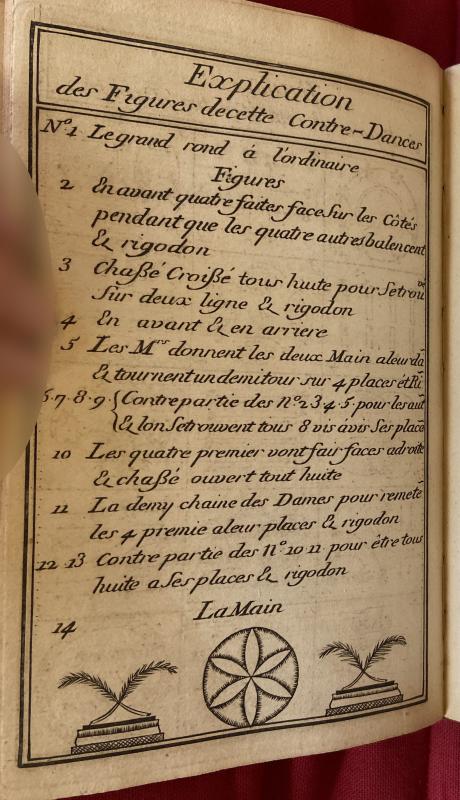 Explication
des Figures decette Contre-Dances
N.º 1 Legrand rond à l'ordinaire
Figures
2 En avant quatre faites face sur les Côtés
pendant que les quatre autres balencent
& rigodon
3 Chaßé Croißé tous huite pour Setrouv
sur deux ligne & rigodon
4 En avant & en arriere
5 Les Mrs donnent les deux Main aleurda
& tournent undemi tour sur 4 places et Ri
6·7·8·9·{ Contre partie des nº 2 3·4·5· pour les aut
& lon Setrouvent tous 8 vis àvis Ses place
10 Les quatre premier vont fair faces adroite
& chaßé ouvert tout huite
11 La demy chaine des Dames pour remete
les 4 premie aleur places & rigodon
12 13 Contre partie des nº 10 11 pour être tous
huite a Ses places & rigodon
14 La Main